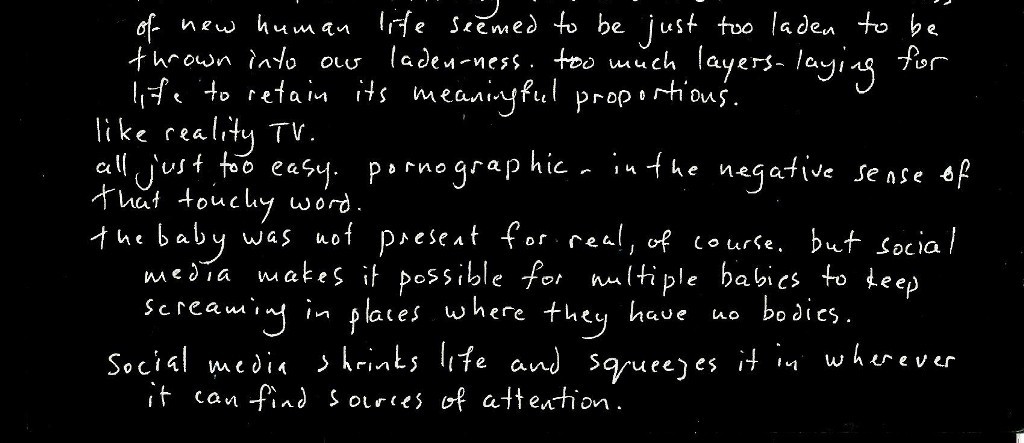 of new human life seemed to be just too laden to be
thrown into our laden-ness. too much layers-laying for
life to retain its meaningful proportions.
like reality TV.
all just too easy. pornographic - in the negative sense of
that touchy word.
the baby was not present for real, of course. but social
media makes it possible for multiple babies to keep
screaming in places where they have no bodies.
Social media shrinks life and squeezes it in wherever
it can find sources of attention.